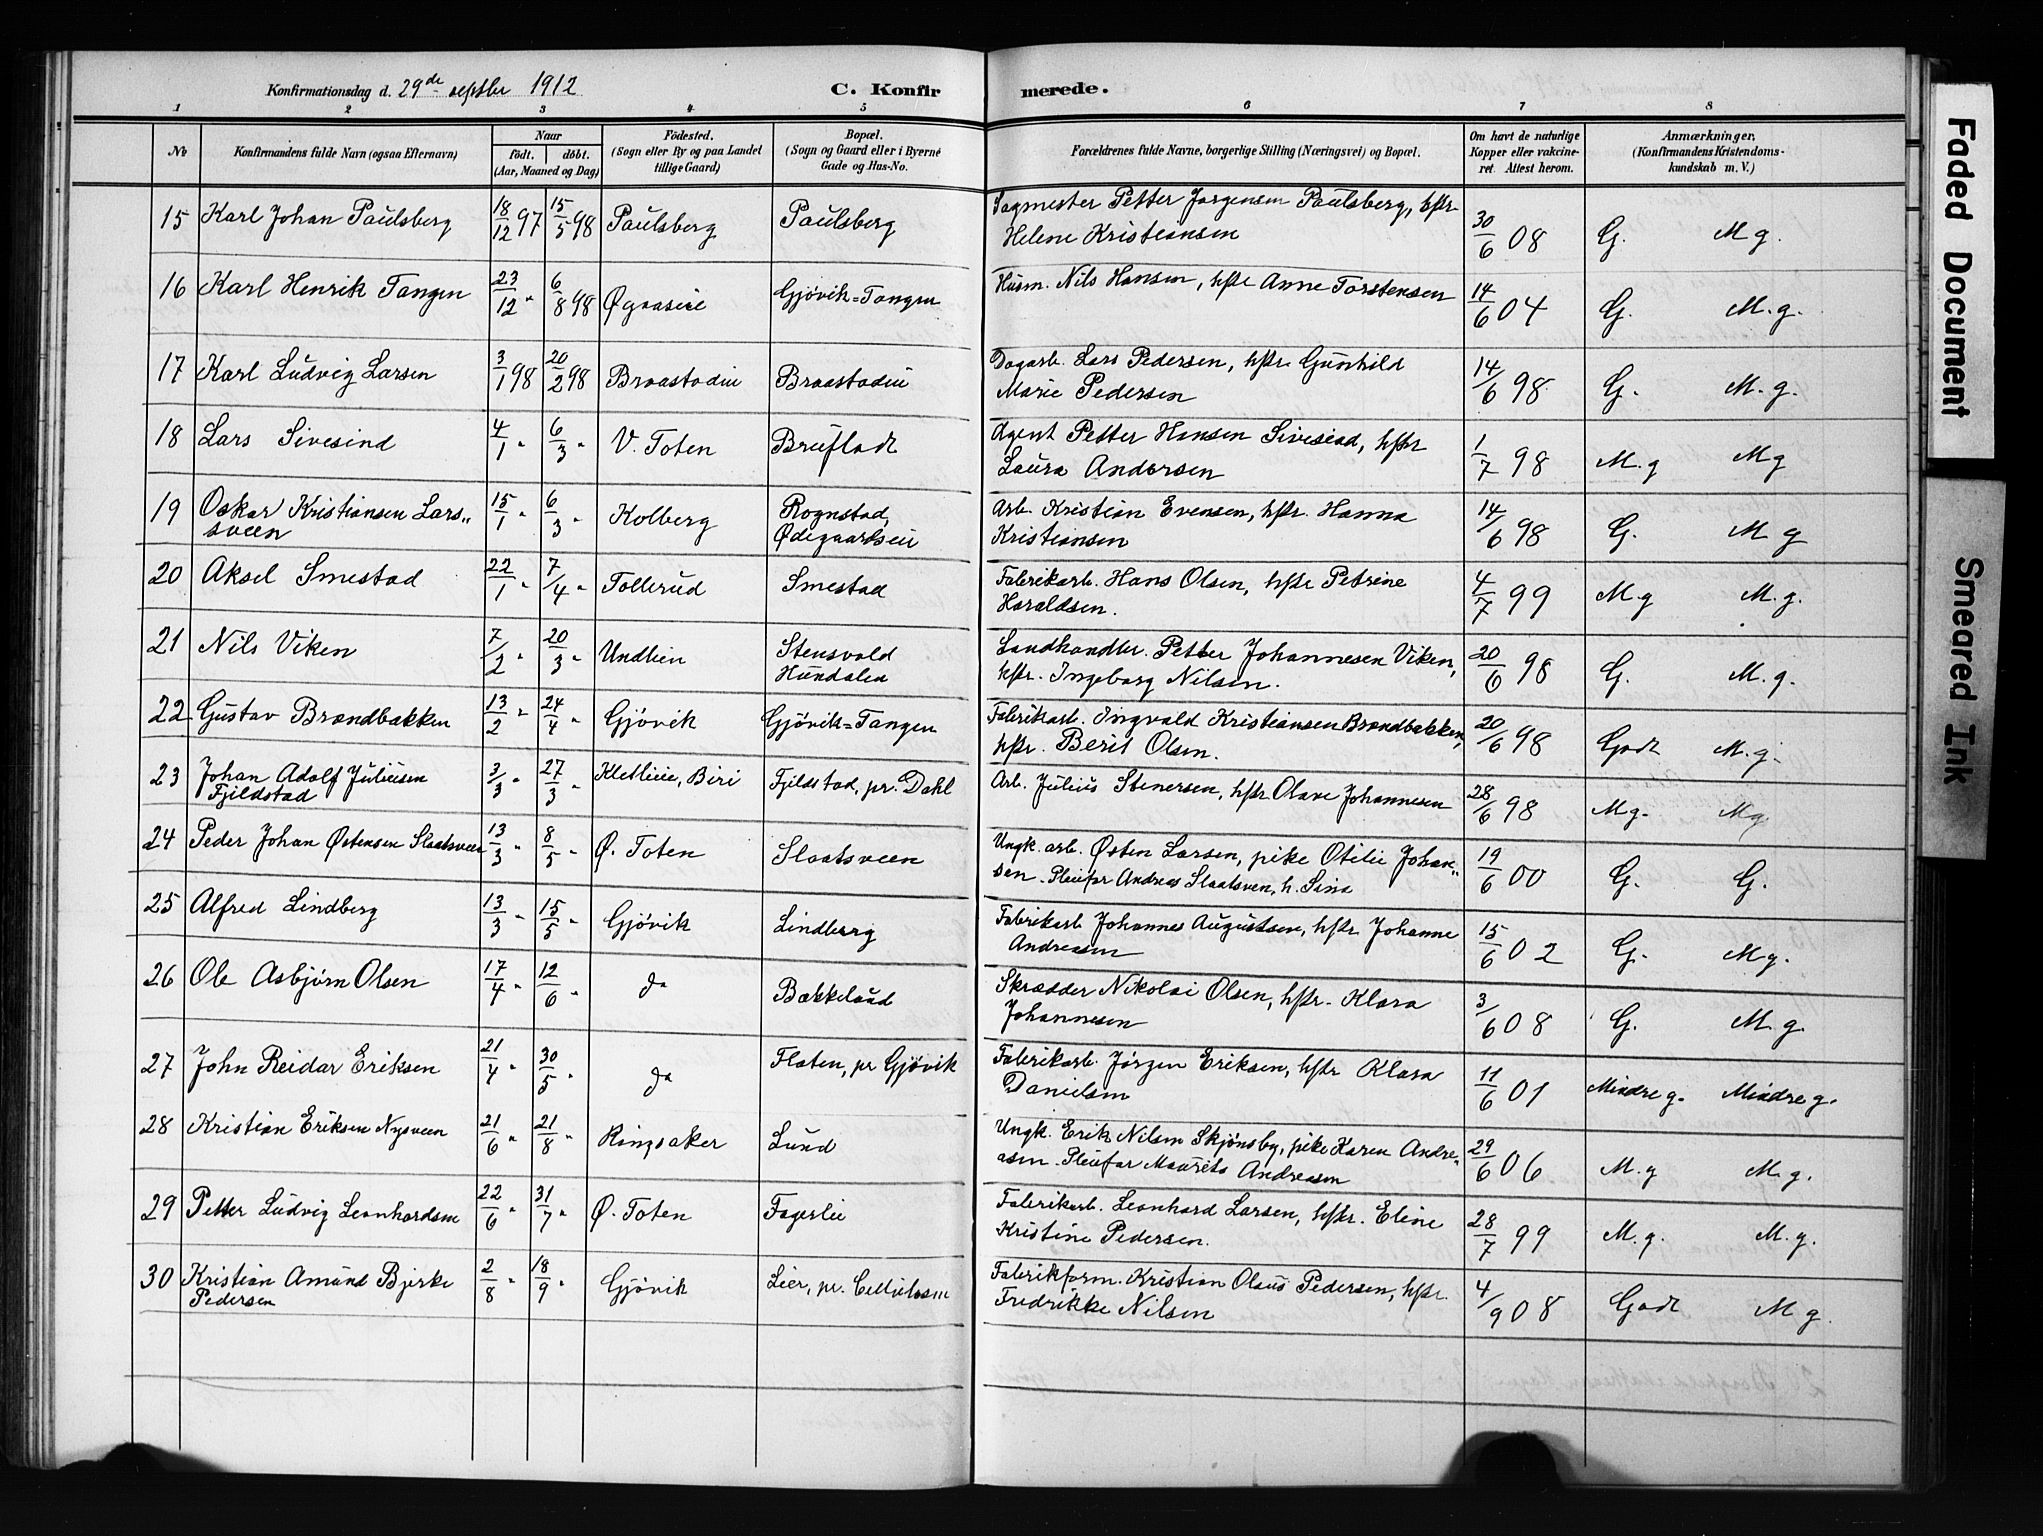 Konfirmationsdag d. 29de septbr 1912 C. Konfirmerede.
1 2 3 4 5 6 7 8
No Konfirmandens fulde Navn (ogsaa Efternavn) Naar født. døbt. (Aar, Maaned og Dag) Fødested. (Sogn eller By og paa Landet tillige Gaard) Bopæl. (Sogn og Gaard eller i Byerne Gade og Hus-No. Forældrenes fulde Navne, borgerlige Stilling (Næringsvei) og Bopæl. Om havt de naturlige Kopper eller vakcineret. Attest herom. Anmærkninger. (Konfirmandens Kristendomskundskab m. V.)
15 Karl Johan Paulsberg 18/12 97 15/5 98 Paulsberg Paulsberg Sagmester Petter Jørgensen Paulsberg, hstr
Helene Kristiansen 30/6 08 G. M g.
16 Karl Henrik Tangen 23/12 " 6/8 98 Øgaaseie Gjövik=Tangen Husm. Nils Hansen, hstr Anne Torstensen 14/6 04 G. M. g.
17 Karl Ludvig Larsen 3/1 98 20/2 98 Braastadeie Braastadeie Dagarb. Lars Pedersen, hstr Gunhild
Marie Pedersen 14/6 98 G. M. g.
18 Lars Sivesind 4/1 " 6/3 " V. Toten Brufladt Agent Petter Hansen Sivesind, hstr
Laura Andersen 1/7 98 M. g M g
19 Oskar Kristiansen Lars„ 15/1 " 6/3 " Kolberg Rognstad, Arb. Kristian Evensen, hstr. Hanna
sveen Ødegaardseie Kristiansen 14/6 98 G. M g
20 Aksel Smestad 22/1 " 7/4 " Tollerud Smestad Fabrikarb. Hans Olsen, hstr Petrine
Haraldsen. 4/7 99 M g M. g.
21 Nils Viken 7/2 " 20/3 " Undlien Stensvold Landhandler. Petter Johannesen Viken,
Hundalen hstr. Ingeborg Nilsen. 20/6 98 G. M. g.
22 Gustav Brændbakken 13/2 " 24/4 " Gjövik Gjövik=Tangen Fabrikarb. Ingvald Kristiansen Brændbakken,
hstr. Berit Olsen. 20/6 98 Godt M. g.
23 Johan Adolf Juliusen 3/3 " 27/3 " Kletlieie, Biri Fjeldstad, pr. Dahl Arb. Julius Stenersen, hstr Olave Johannesen
Fjeldstad 28/6 98 M g. M g
24 Peder Johan Østensen Slaatsveen 13/3 " 8/5 " Ø. Toten Slaatsveen Ungk. arb. Østen Larsen, pike Otilie Johan„
sen. Pleiefar Andreas Slaatsven, h. Sina 19/6 00 G. G.
25 Alfred Lindberg 13/3 " 15/5 " Gjövik Lindberg Fabrikarb Johannes Augustsen, hstr Johanne
Andreasen 15/6 02 G. M g.
26 Ole Asbjørn Olsen 17/4 " 12/6 " do Bækkelund Skrædder Nikolai Olsen, hstr. Klara
Johannesen 3/6 08 G. M. g.
27 John Reidar Eriksen 21/4 " 30/5 " do Flaten, pr Gjövik Fabrikarb. Jørgen Eriksen, hstr Klara
Danielsen 11/6 01 Mindre g. Mindre g.
28 Kristian Eriksen Nysveen 21/6 " 21/8 " Ringsaker Lund Ungk. Erik Nilsen Skjønsby, pike Karen Andre„
asen. Pleiefar Maurits Andreasen 29/6 06 M. g M. g.
29 Petter Ludvig Leonhardsen 22/6 " 31/7 " Ø. Toten Fagerlie Fabrikarb. Leonhard Larsen, hstr. Eline
Kristine Pedersen. 28/7 99 M. g. M. g.
30 Kristian Amund Bjerke 2/8 " 18/9 " Gjövik Lier, pr. Cellulosen Fabrikform. Kristian Olaus Pedersen, hstr.
Pedersen Fredrikke Nilsen 4/9 08 Godt M g.
Faded Document
Smeared Ink